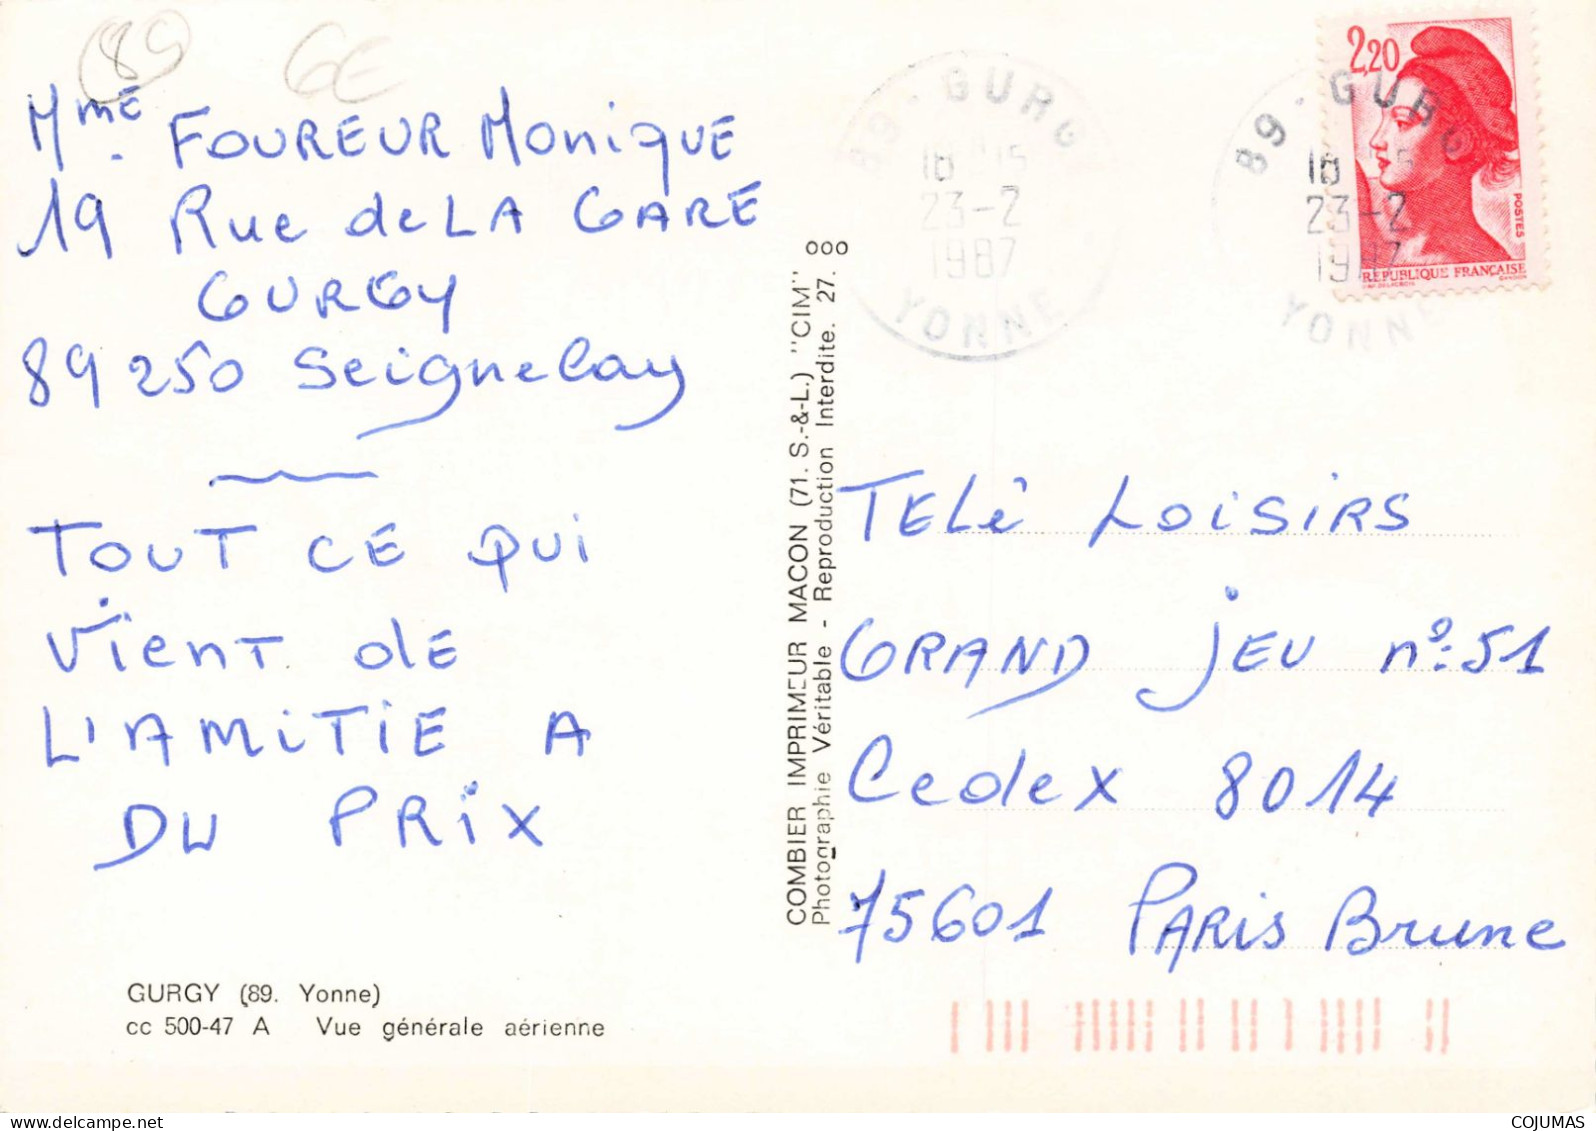 89 GE
Mme FOUREUR Monique
19 Rue de LA GARE
GURGY
89 250 Seignelay
TOUT CE QUI
Vient de
L'AMITIE A
DU PRIX
GURGY (89. Yonne)
cc 500-47 A Vue générale aérienne
COMBIER IMPRIMEUR MACON (71. S.-&-L.) "CIM"
Photographie Véritable - Reproduction Interdite. 27. ooo
89 - GURGY
23-2
1987
YONNE
2,20
POSTES
REPUBLIQUE FRANÇAISE
89 - GURGY
23-2
1987
YONNE
TELé LOISIRS
GRAND JEU nº 51
Cedex 8014
75601 PARIS Brune
COJUMAS